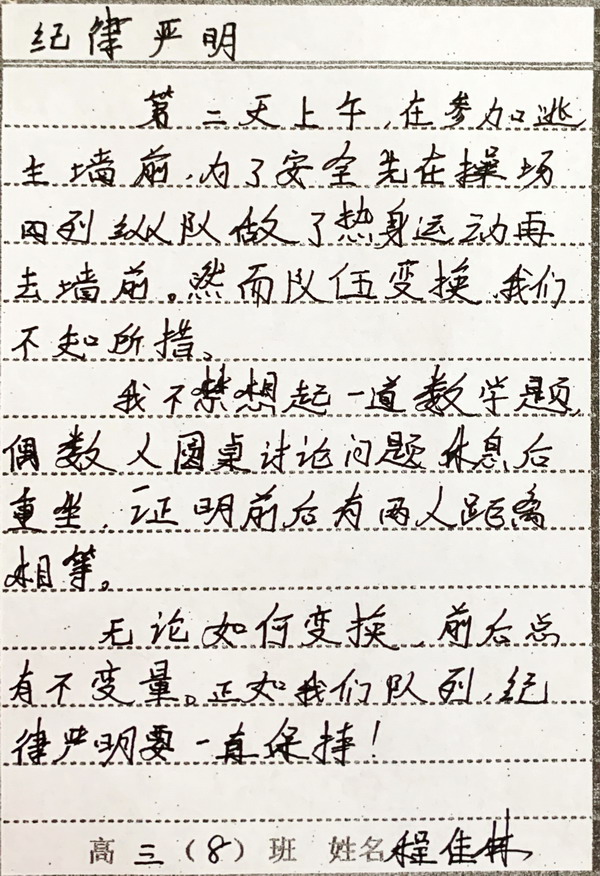 纪律严明
第二天上午,在参加逃
生墙前,为了安全先在操场
四列纵队做了热身运动再
去墙前。然而队伍变换,我们
不知所措。
我不禁想起一道数学题,
偶数人圆桌讨论问题休息后
重坐,证明前后有两人距离
相等。
无论如何变换,前后总
有不变量。正如我们队列,纪
律严明要一直保持!
高三(8)班 姓名程佳林